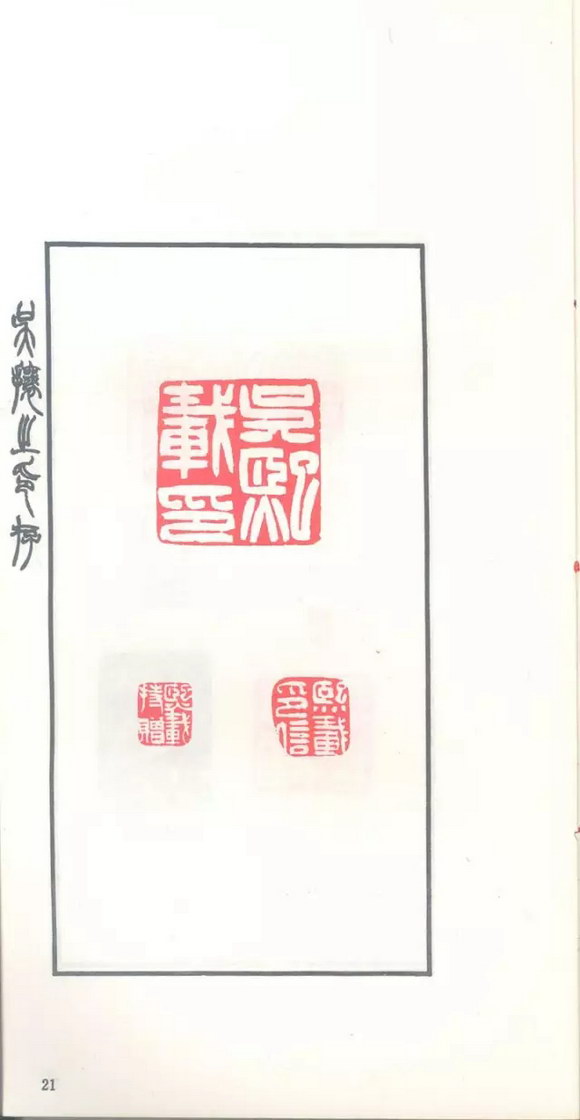 吳攘之印存
吳熙載印
熙載印信
熙載持贈
21